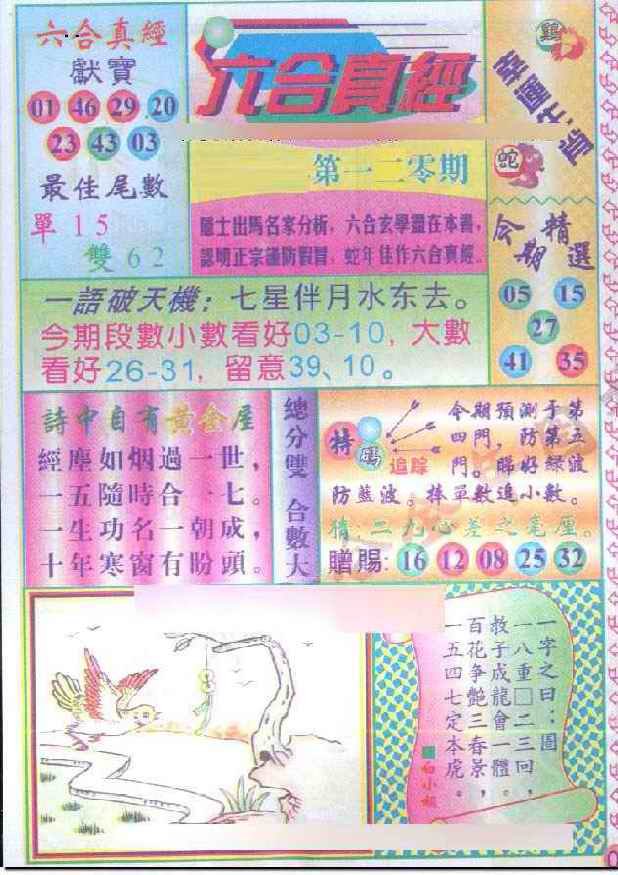 六合真經
獻寶
01 46 29 20
23 43 03
最佳尾數
單 1 5
雙 6 2
六合真經
第一二零期
隱士出馬名家分析，六合玄學盡在本書，
認明正宗謹防假冒，蛇年佳作六合真經。
鷄
蛇
今期精選
05 15
27
41 35
一語破天機：七星伴月水东去。
今期段數小數看好03-10，大數
看好26-31，留意39、10。
詩中自有黃金屋
經塵如烟過一世，
一五隨時合一七。
一生功名一朝成，
十年寒窗有盼頭。
總分雙 合數大
特碼追踪
今期預測于第
四門，防第五
門。睇好綠波
防藍波。捧單數追小數。
猜:二九心差之毫厘。
贈賜: 16 12 08 25 32
一字之曰：圖
一八重□二三回，
救子成龍會一體。
百花争艷三春景，
一五四七定本虎。
■白小姐